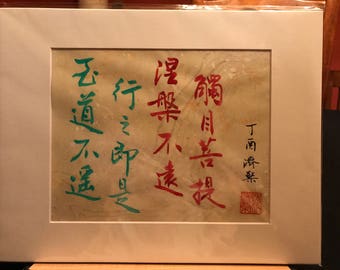 觸目菩提
涅槃不遠
行之即是
至道不遥
丁酉 濟群